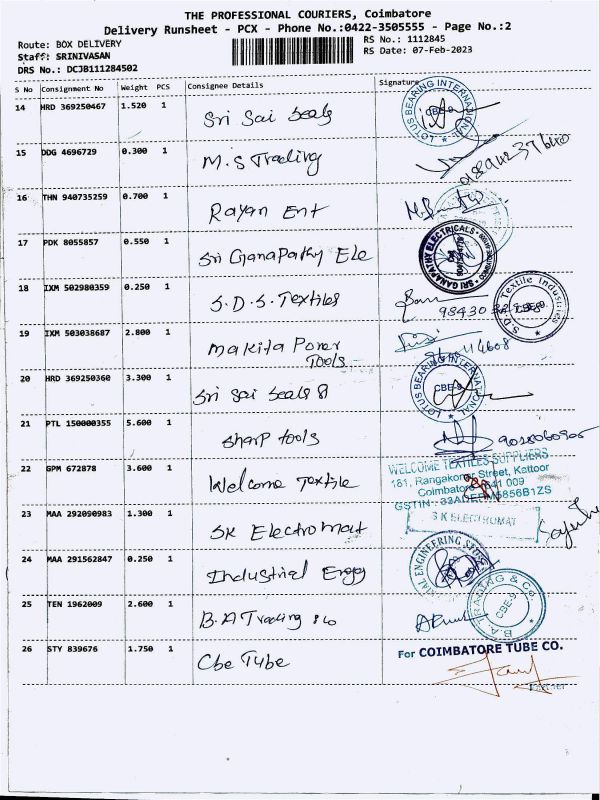 THE PROFESSIONAL COURIERS, Coimbatore
Delivery Runsheet - PCX - Phone No.:0422-3505555 - Page No.:2
Route: BOX DELIVERY RS No.: 1112845
Staff: SRINIVASAN RS Date: 07-Feb-2023
DRS No.: DCJB111284502
S No Consignment No Weight PCS Consignee Details Signature
14 HRD 369250467 1.520 1 Sri Sai Seals
LOTUS BEARING INTERNATIONAL CBE-9
15 DDG 4696729 0.300 1 M.S Trading
16 THN 940735259 0.700 1 Rayan Ent
17 PDK 8055857 0.550 1 Sri GanaPathy Ele
SRI GANAPATHY ELECTRICALS
18 IXM 502980359 0.250 1 S.D.S. Textiles
98430
S.D.S. Textile Industries CBE-9
19 IXM 503038687 2.800 1 Makita Power
Tools
20 HRD 369250360 3.300 1 Sri Sai Seals
LOTUS BEARING INTERNATIONAL CBE-9
21 PTL 150000355 5.600 1 Sharp tools
22 GPM 672878 3.600 1 Welcome Textile
WELCOME TEXTILES SUPPLIERS
181, Rangakonar Street, Kattoor
Coimbatore 641 009
GSTIN:
23 MAA 292090983 1.300 1 SK Electromat
S K ELECTROMAT
24 MAA 291562847 0.250 1 Industrial Engg
25 TEN 1962009 2.600 1 B.A Trading &co
B.A. TRADING & Co. CBE-9
26 STY 839676 1.750 1 Cbe Tube
For COIMBATORE TUBE CO.
Partner